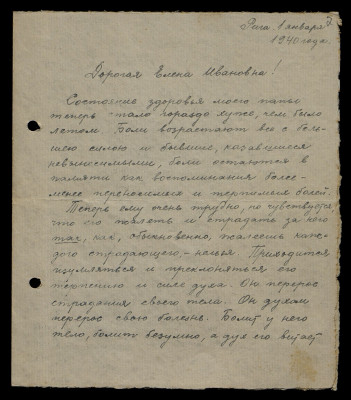 Рига. 1 января
1940 года.
Дорогая Елена Ивановна!
Состояние здоровья моего папы
теперь стало гораздо хуже, чем было
летом. Боли возрастают все с боль-
шею силою и бывшие, казавшиеся
невыносимыми, боли остаются в
памяти как воспоминания более-
менее переносимых и терпимых болей.
Теперь ему очень трудно, но чувствуется
что его жалеть и страдать за него
так, как, обыкновенно, жалеешь каж-
дого страдающего – нельзя. Приходится
изумляться и преклоняться его
терпению и силе духа. Он перерос
страдания своего тела. Он духом
перерос свою болезнь. Болит у него
тело, болит безумно, а дух его витает